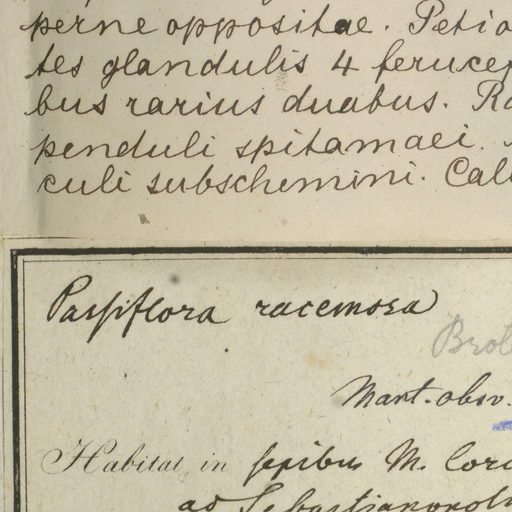 perne oppositae. Petio
tes glandulis 4 feruce
bus rarius duabus. Ra
penduli spitamaei.
culi subschemini. Cal
Passiflora racemosa
Brot
Mart. obsv.
Habitat in sepibus M. Corc
ad Sebastianopol